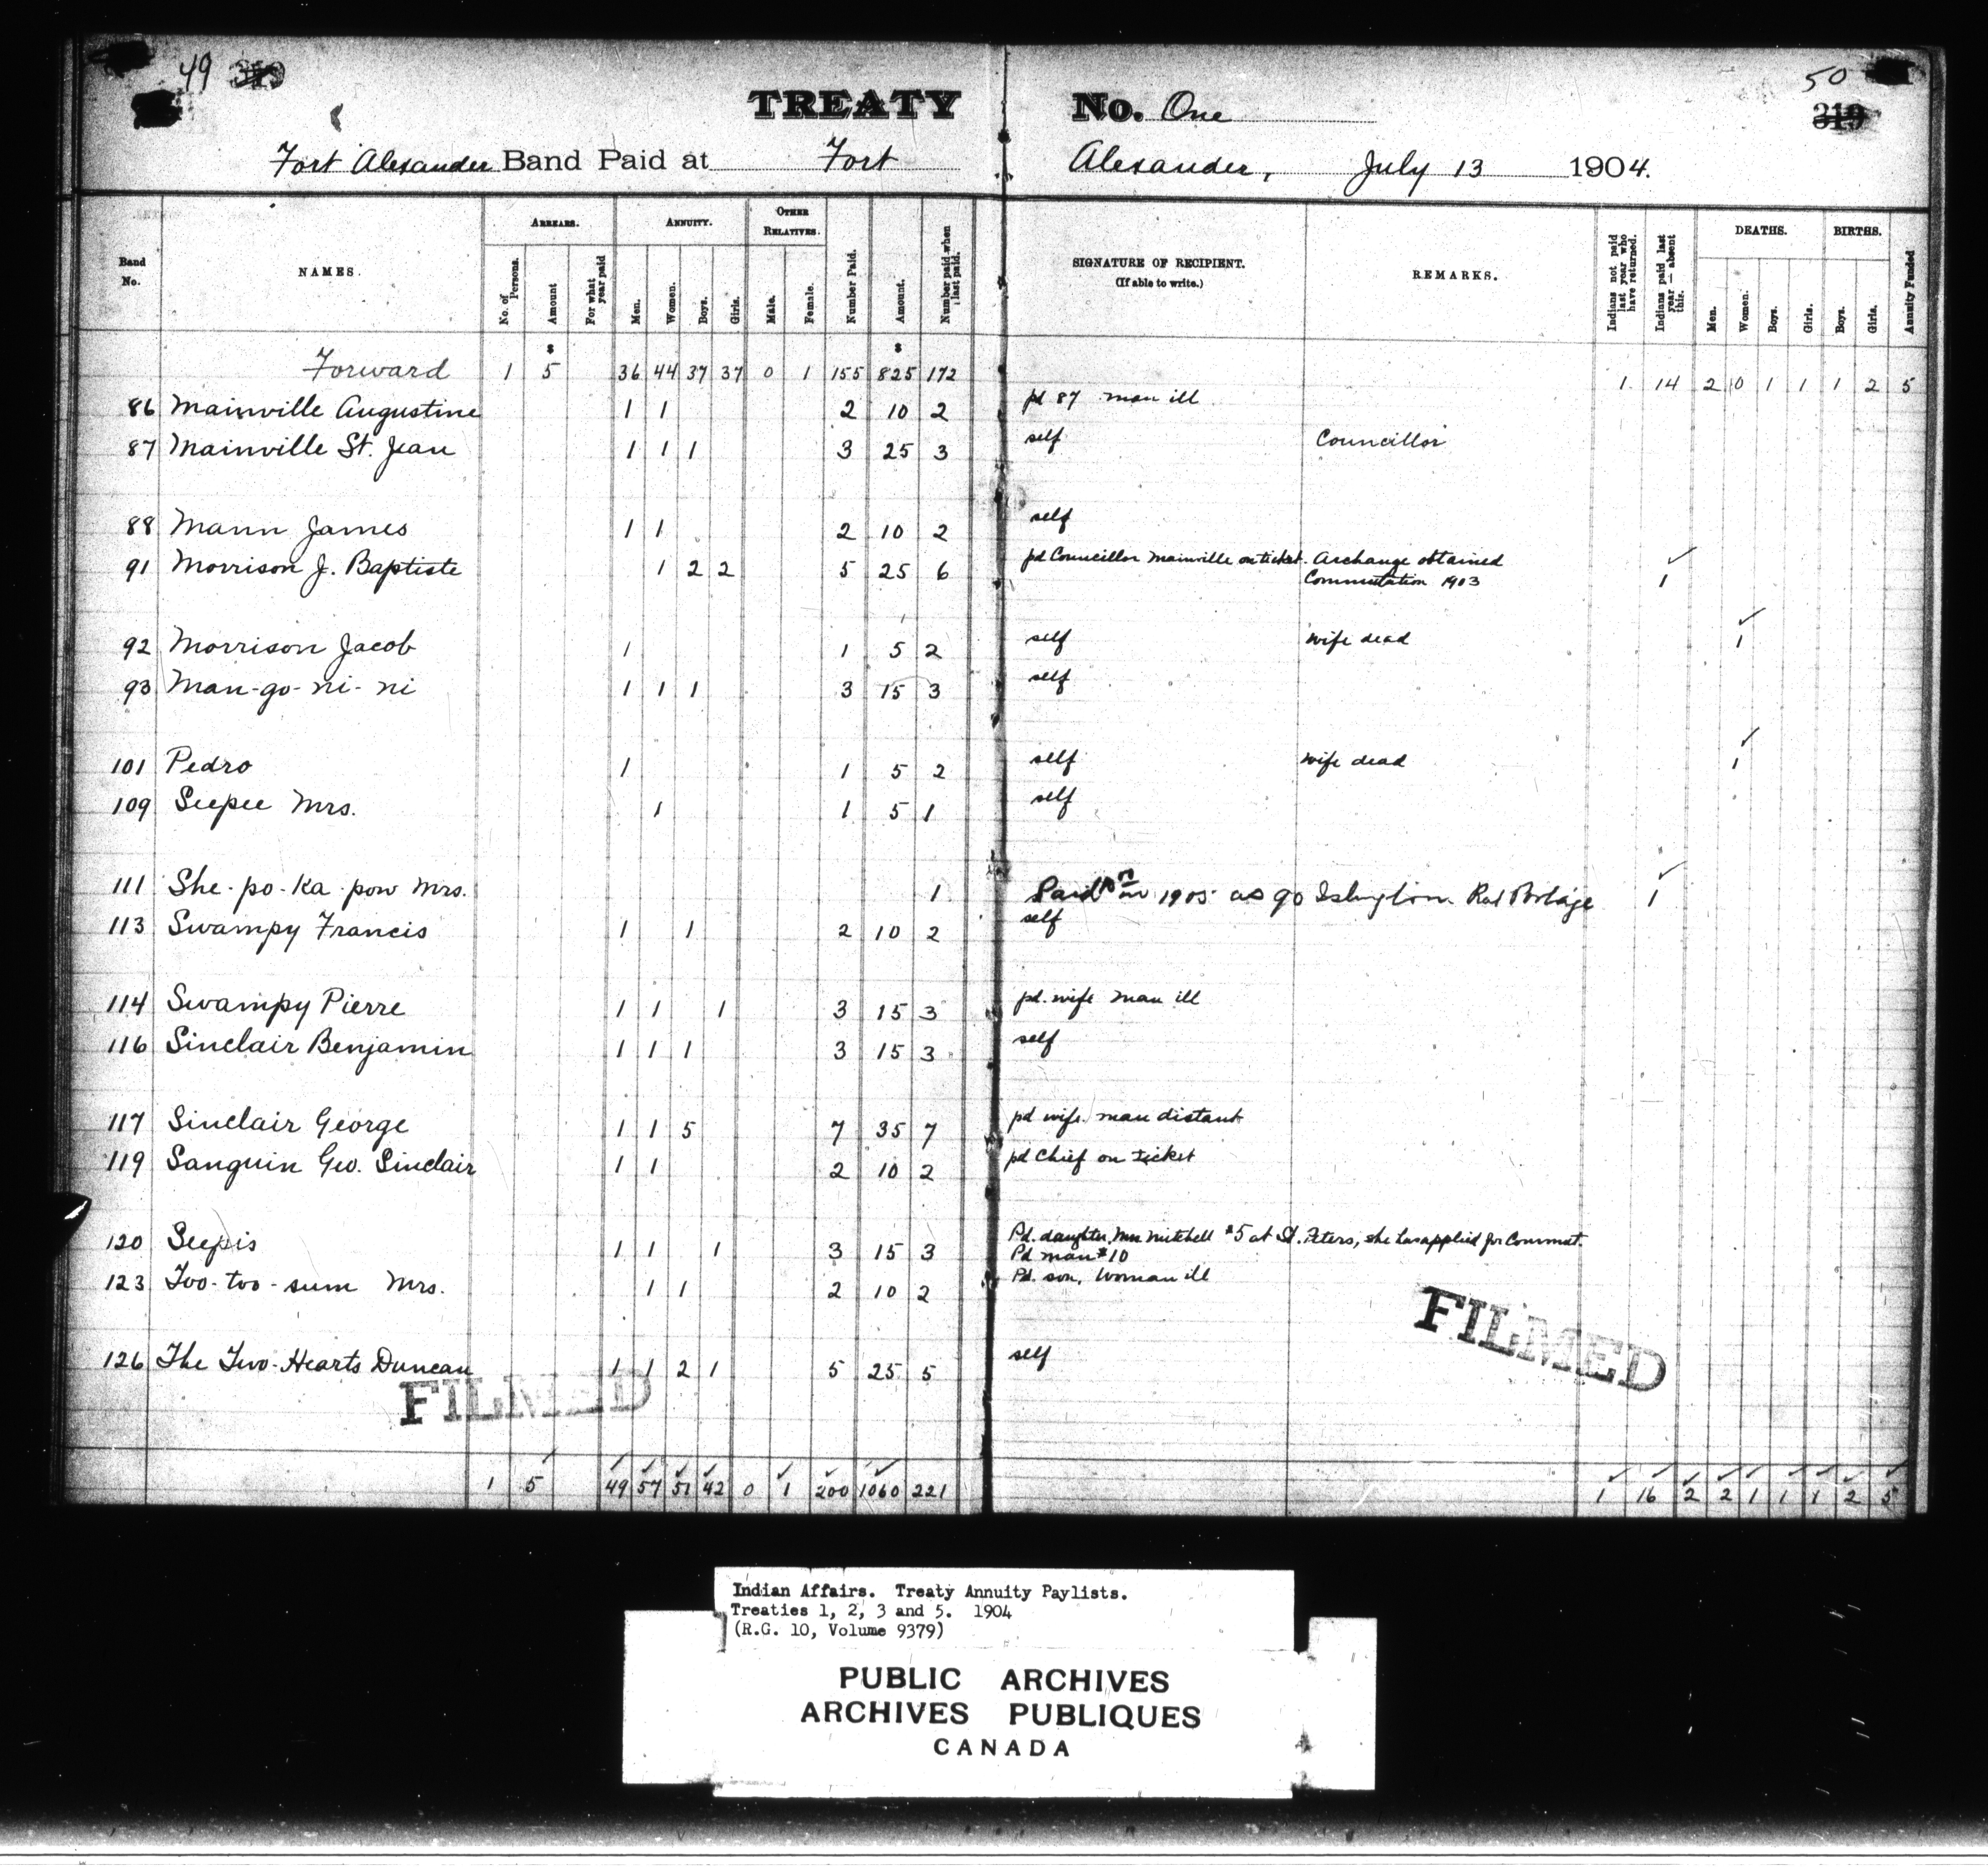 49 319
50
319
TREATY No. One
Fort Alexander Band Paid at Fort Alexander, July 13 1904.
Band No. NAMES. ARREARS. No. of Persons. Amount For what year paid ANNUITY. Men. Women. Boys. Girls. OTHER RELATIVES. Male. Female. Number Paid. Amount. Number paid when last paid. SIGNATURE OF RECIPIENT. (If able to write.) REMARKS. Indians not paid last year who have returned. Indians paid last year — absent this. DEATHS. Men. Women. Boys. Girls. BIRTHS. Boys. Girls. Annuity Funded
$ $
Forward 1 5 36 44 37 37 0 1 155 825 172 1 14 2 0 1 1 1 2 5
86 Mainville Augustine 1 1 2 10 2 pd 87 man ill
87 Mainville St. Jean 1 1 1 3 25 3 self Councillor
88 Mann James 1 1 2 10 2 self
91 Morrison J. Baptiste 1 2 2 5 25 6 pd Councillor Mainville on ticket. Archange obtained
Commutation 1903 1
92 Morrison Jacob 1 1 5 2 self wife dead 1
93 Man-go-ni-ni 1 1 1 3 15 3 self
101 Pedro 1 1 5 2 self wife dead 1
109 Seepee Mrs. 1 1 5 1 self
111 She-po-ka-pow Mrs. 1 Paid in 1905 as 90 Islington Rat Portage 1
113 Swampy Francis 1 1 2 10 2 self
114 Swampy Pierre 1 1 1 3 15 3 pd. wife man ill
116 Sinclair Benjamin 1 1 1 3 15 3 self
117 Sinclair George 1 1 5 7 35 7 pd wife. man distant
119 Sanguin Geo. Sinclair 1 1 2 10 2 pd Chief on ticket
120 Seepis 1 1 1 3 15 3 Pd. daughter, Mrs Mitchell $5 at St. Peters, she has applied for Commut.
Pd man $10
123 Too-too-sum Mrs. 1 1 2 10 2 Pd. son, Woman ill
126 The Two-Hearts Duncan 1 1 2 1 5 25 5 self
FILMED
FILMED
1 5 49 57 51 42 0 1 200 1060 221 1 16 2 2 1 1 1 2 5
Indian Affairs. Treaty Annuity Paylists.
Treaties 1, 2, 3 and 5. 1904
(R.G. 10, Volume 9379)
PUBLIC ARCHIVES
ARCHIVES PUBLIQUES
CANADA